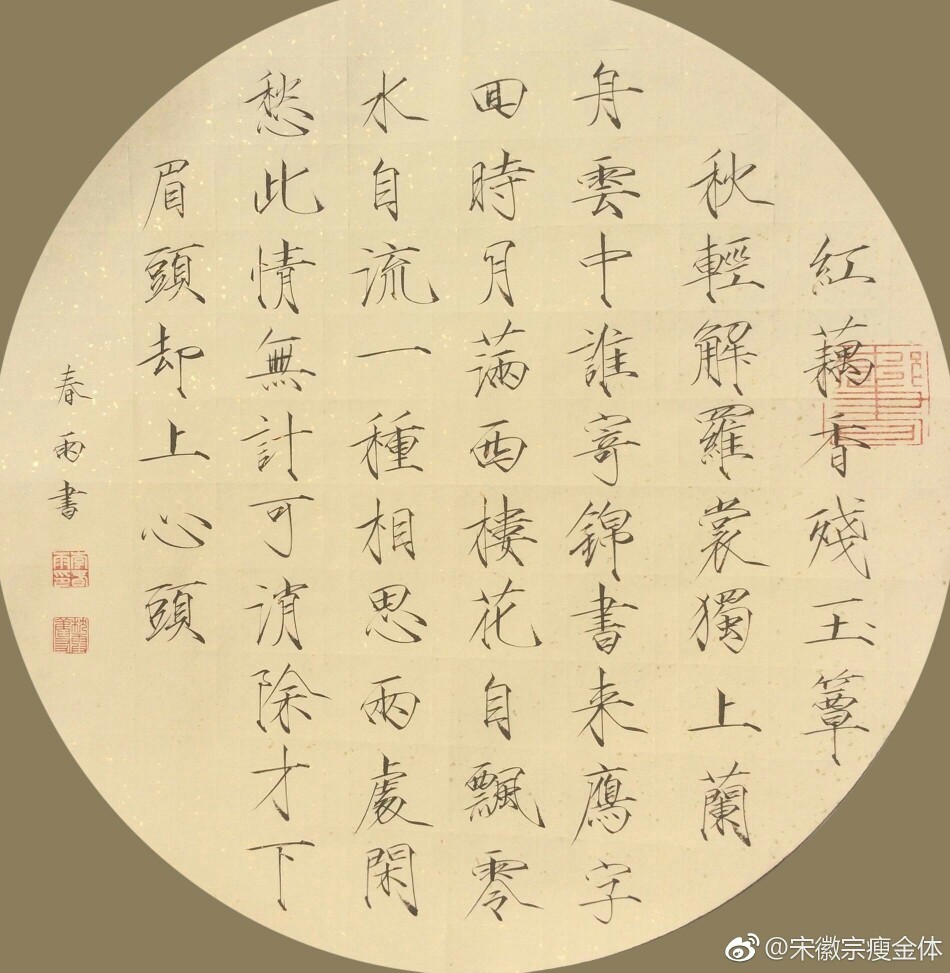 紅藕香殘玉簟
秋輕解羅裳獨上蘭
舟雲中誰寄錦書来鴈字
回時月滿西樓花自飄零
水自流一種相思兩處閑
愁此情無計可消除才下
眉頭却上心頭
春雨書
@宋徽宗瘦金体